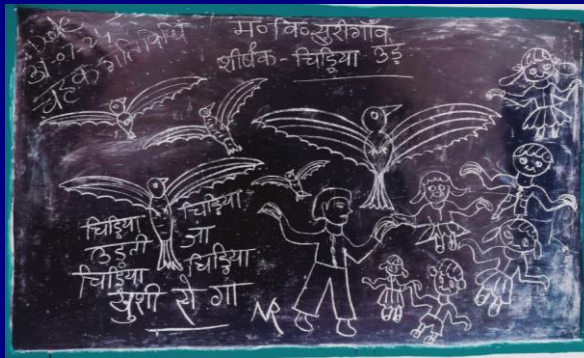 म० वि० सुरीगाँव
शीर्षक - चिड़िया उड़
गतिविधि
चिड़िया
उड़ती
चिड़िया
चिड़िया
जा
चिड़िया
खुशी से गा
NR